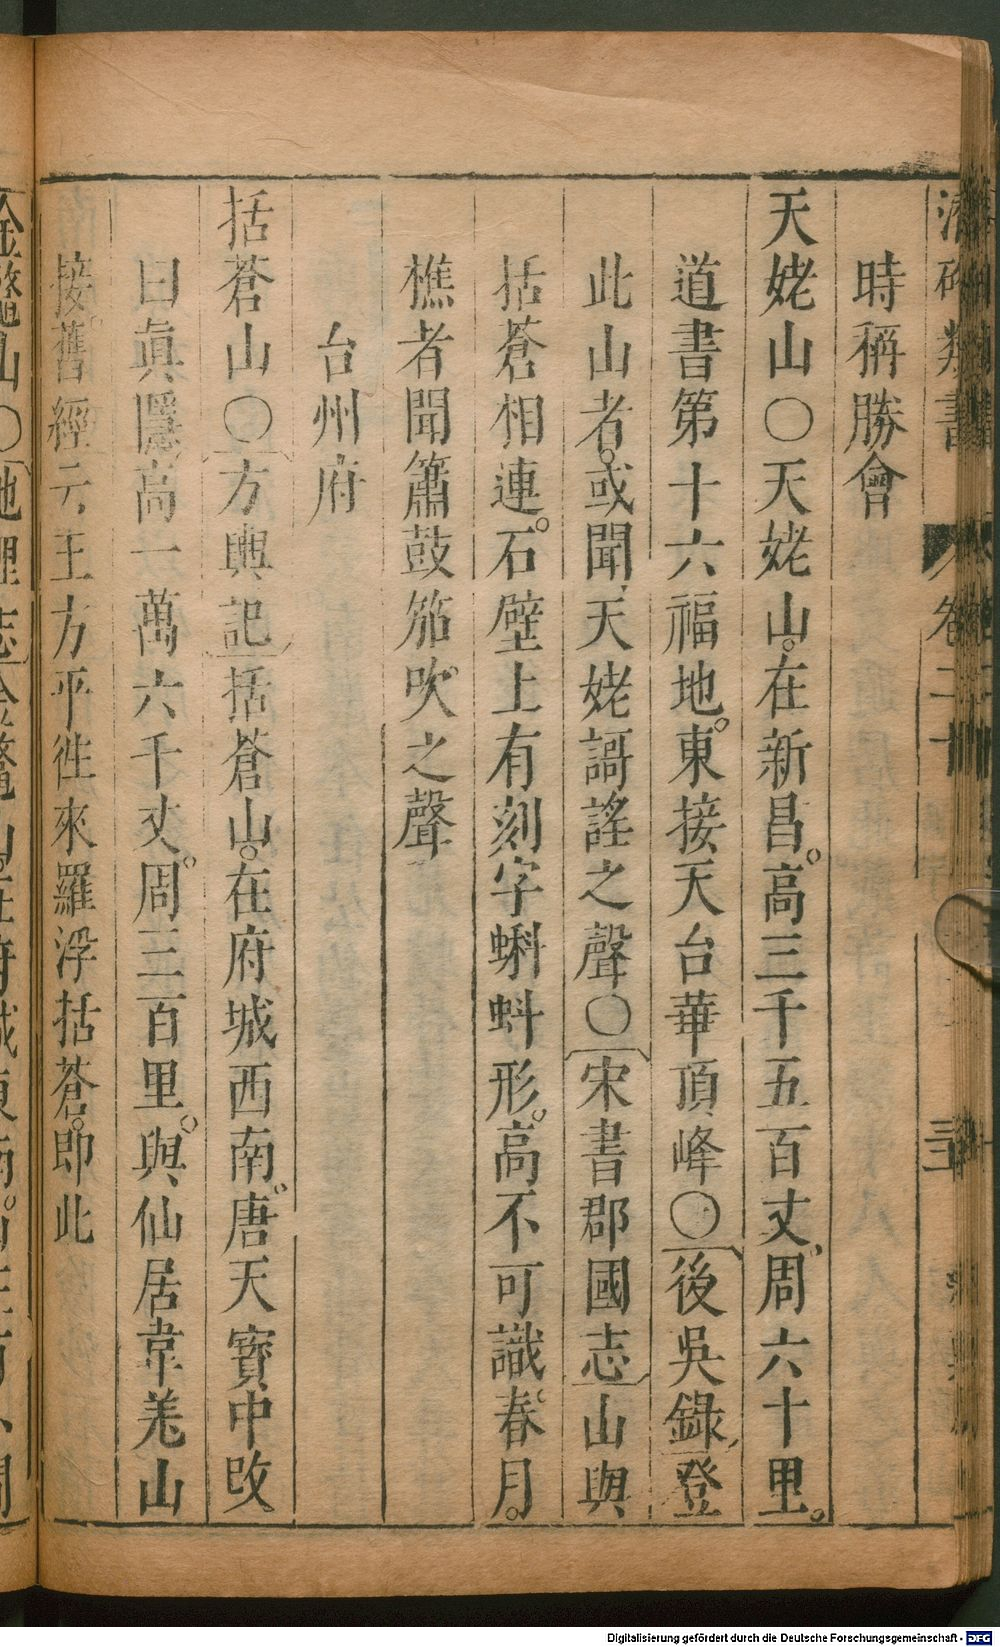 類書 卷二十
時稱勝會
天姥山〇天姥山。在新昌。高三千五百丈。周六十里。
道書第十六福地。東接天台華頂峰〇後吳錄登
此山者。或聞天姥謌謠之聲〇宋書郡國志山與
括蒼相連。石壁上有刻字蝌蚪形。高不可識。春月。
樵者聞簫鼓笳吹之聲
台州府
括蒼山〇方輿記括蒼山。在府城西南。唐天寶中改
曰真隱高一萬六千丈。周三百里。與仙居韋羌山
接。舊經云王方平徃來羅浮括蒼。即此
Digitalisierung gefördert durch die Deutsche Forschungsgemeinschaft - DFG